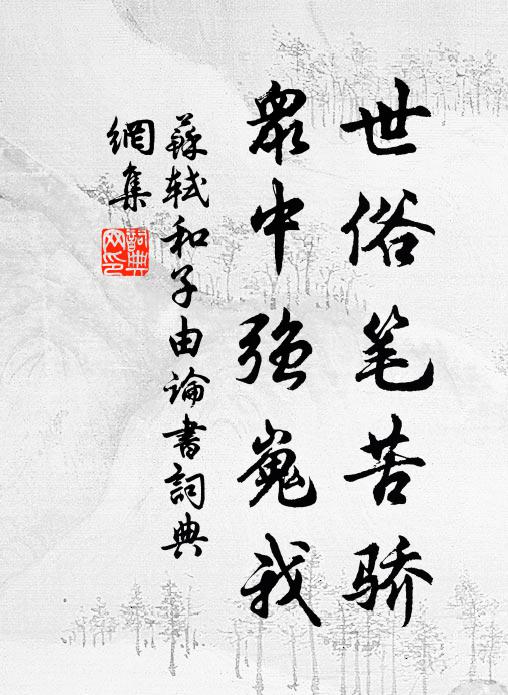 世俗笔苦骄
眾中強嵬我
蘇軾和子由論書詞典
網集
詞典
网印